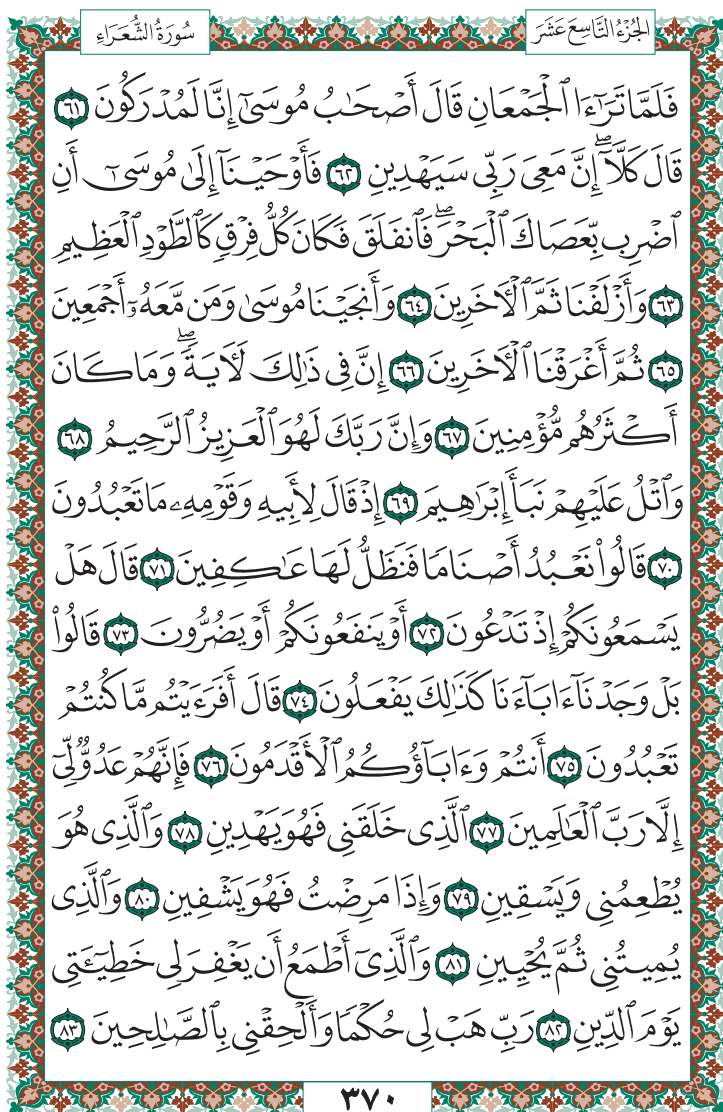 الجُزْءُ التَّاسِعَ عَشَرَ
سُورَةُ الشُّعَرَاءِ
فَلَمَّا تَرَٰٓءَا ٱلْجَمْعَانِ قَالَ أَصْحَٰبُ مُوسَىٰٓ إِنَّا لَمُدْرَكُونَ ٦١
قَالَ كَلَّآۖ إِنَّ مَعِىَ رَبِّى سَيَهْدِينِ ٦٢ فَأَوْحَيْنَآ إِلَىٰ مُوسَىٰٓ أَنِ
ٱضْرِب بِّعَصَاكَ ٱلْبَحْرَۖ فَٱنفَلَقَ فَكَانَ كُلُّ فِرْقٍ كَٱلطَّوْدِ ٱلْعَظِيمِ
٦٣ وَأَزْلَفْنَا ثَمَّ ٱلْأٓخَرِينَ ٦٤ وَأَنجَيْنَا مُوسَىٰ وَمَن مَّعَهُۥٓ أَجْمَعِينَ
٦٥ ثُمَّ أَغْرَقْنَا ٱلْأٓخَرِينَ ٦٦ إِنَّ فِى ذَٰلِكَ لَأٓيَةًۖ وَمَا كَانَ
أَكْثَرُهُم مُّؤْمِنِينَ ٦٧ وَإِنَّ رَبَّكَ لَهُوَ ٱلْعَزِيزُ ٱلرَّحِيمُ ٦٨
وَٱتْلُ عَلَيْهِمْ نَبَأَ إِبْرَٰهِيمَ ٦٩ إِذْ قَالَ لِأَبِيهِ وَقَوْمِهِۦ مَا تَعْبُدُونَ
٧٠ قَالُوا۟ نَعْبُدُ أَصْنَامًا فَنَظَلُّ لَهَا عَٰكِفِينَ ٧١ قَالَ هَلْ
يَسْمَعُونَكُمْ إِذْ تَدْعُونَ ٧٢ أَوْ يَنفَعُونَكُمْ أَوْ يَضُرُّونَ ٧٣ قَالُوا۟
بَلْ وَجَدْنَآ ءَابَآءَنَا كَذَٰلِكَ يَفْعَلُونَ ٧٤ قَالَ أَفَرَءَيْتُم مَّا كُنتُمْ
تَعْبُدُونَ ٧٥ أَنتُمْ وَءَابَآؤُكُمُ ٱلْأَقْدَمُونَ ٧٦ فَإِنَّهُمْ عَدُوٌّ لِّىٓ
إِلَّا رَبَّ ٱلْعَٰلَمِينَ ٧٧ ٱلَّذِى خَلَقَنِى فَهُوَ يَهْدِينِ ٧٨ وَٱلَّذِى هُوَ
يُطْعِمُنِى وَيَسْقِينِ ٧٩ وَإِذَا مَرِضْتُ فَهُوَ يَشْفِينِ ٨٠ وَٱلَّذِى
يُمِيتُنِى ثُمَّ يُحْيِينِ ٨١ وَٱلَّذِىٓ أَطْمَعُ أَن يَغْفِرَ لِى خَطِيٓـَٔتِى
يَوْمَ ٱلدِّينِ ٨٢ رَبِّ هَبْ لِى حُكْمًا وَأَلْحِقْنِى بِٱلصَّٰلِحِينَ ٨٣
٣٧٠